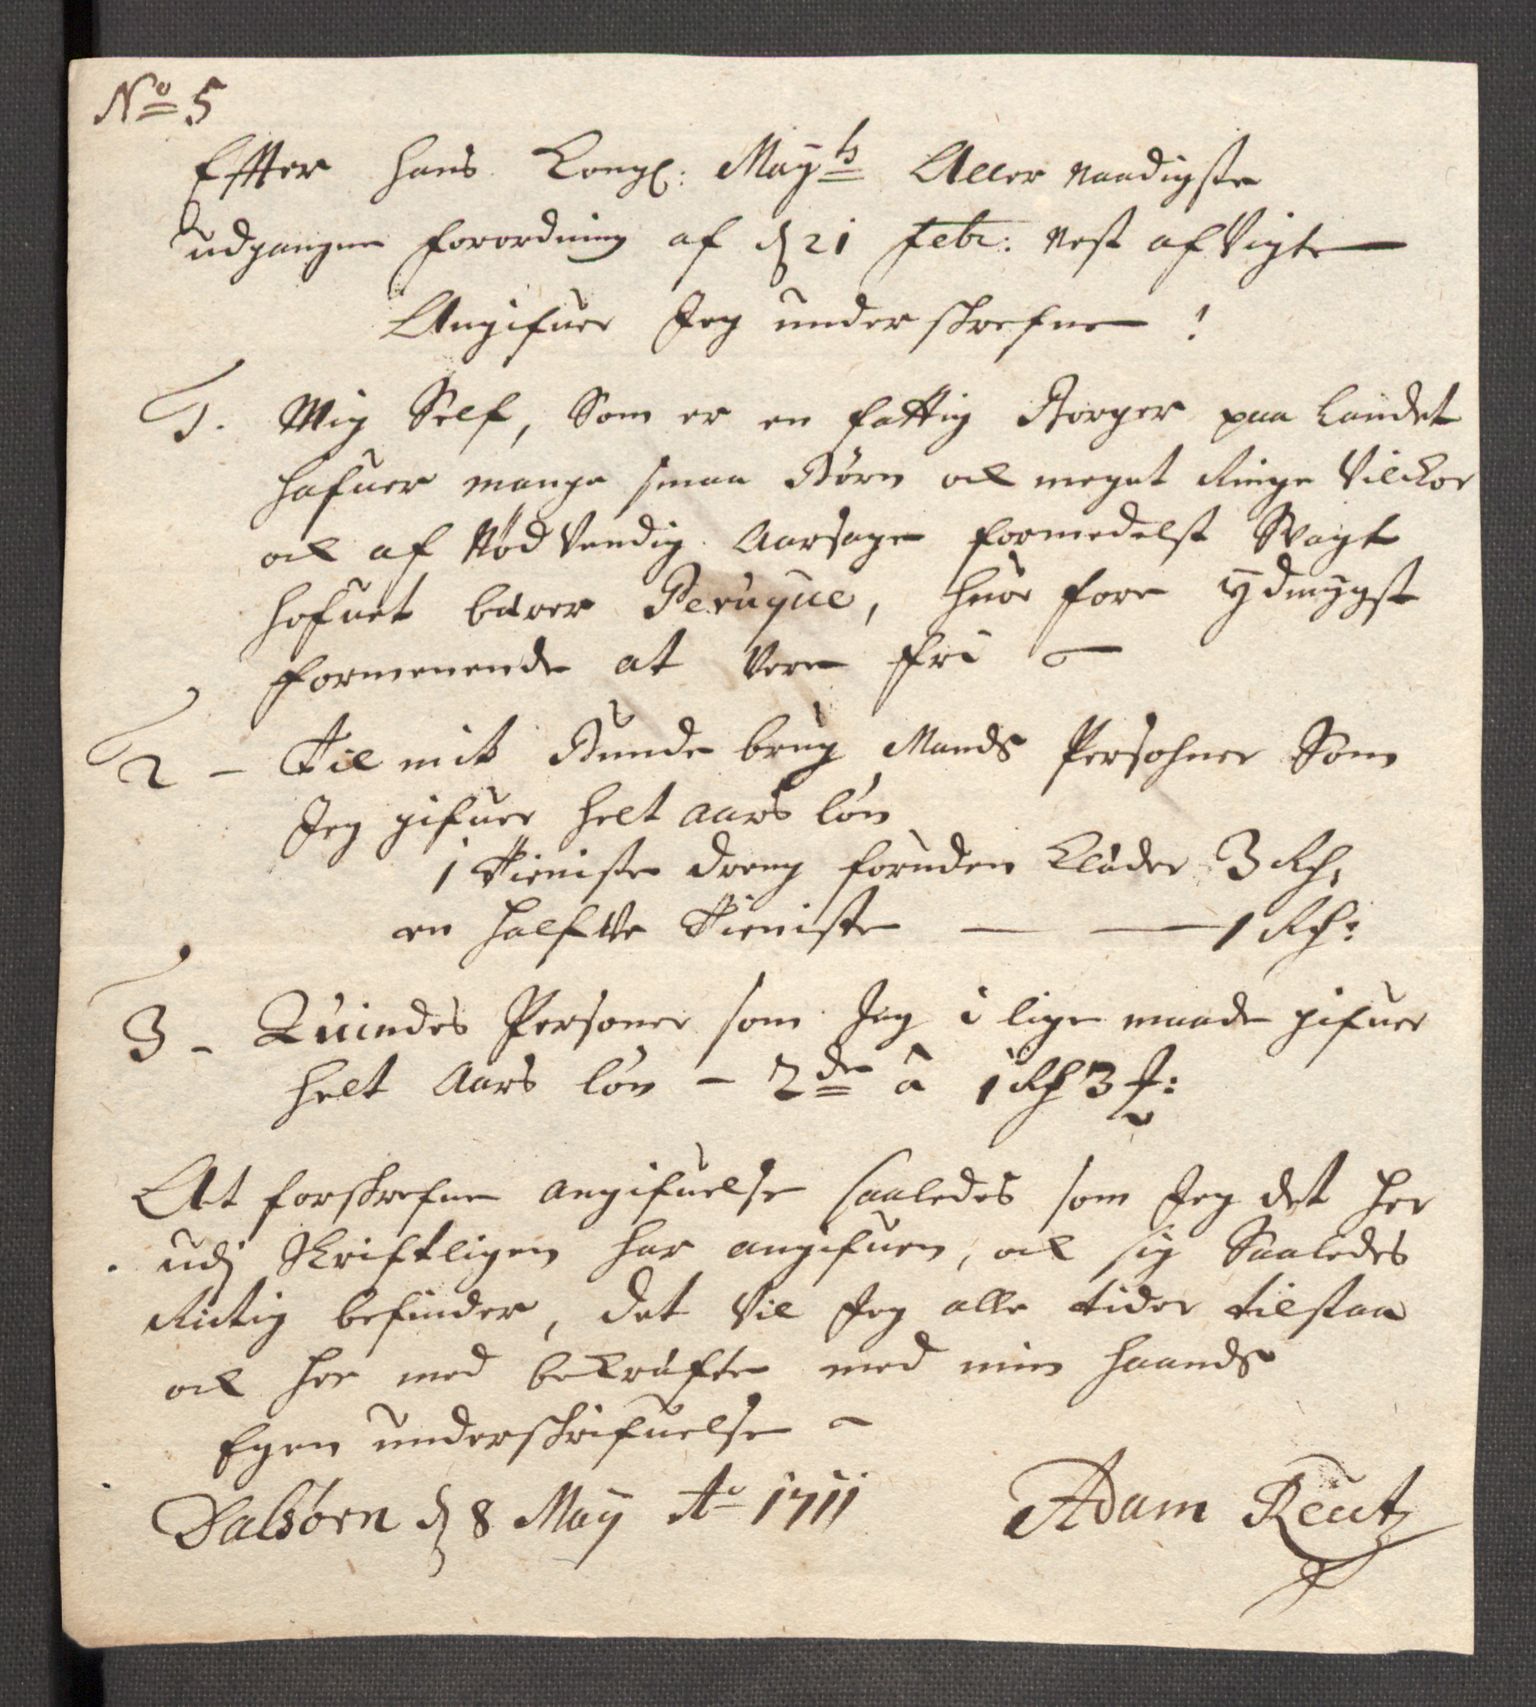 No 5
Effter Hans Kongl: Mayts Aller naadigste
udgangne forordning af d 21 Febr: nest afvigte
Angifuer Jeg underskrefne !
1. Mig Self, Som er en fattig Borger paa Landet
hafuer mange smaa Børn och meget Ringe Vilckor
och af Nødvendig Aarsage formedelst Svagt
Hofuet bærer Peruque, huor fore ydmygst
formenende at Vere frj
2 - Til mit Bunde brug Mands Persohner Som
Jeg gifuer helt aars løn
1 Tieniste dreng foruden Klæder 3 Rd,
en halfve Tieniste — — 1 Rd:
3 - Quindes Personer som Jeg i lige maade gifuer
helt Aars løn - 2de â 1 Rd 3 :
At forskrefne angifuelse saaledes som Jeg det her
udj Skriftligen har angifuen, och sig Saaledes
Rictig befinder, det Vil Jeg alle tider tilstaa
och her med bekræfte med min haands
Egen underskrifuelse
Dalsøren d 8 Maij Ao 1711
Adam Reutz